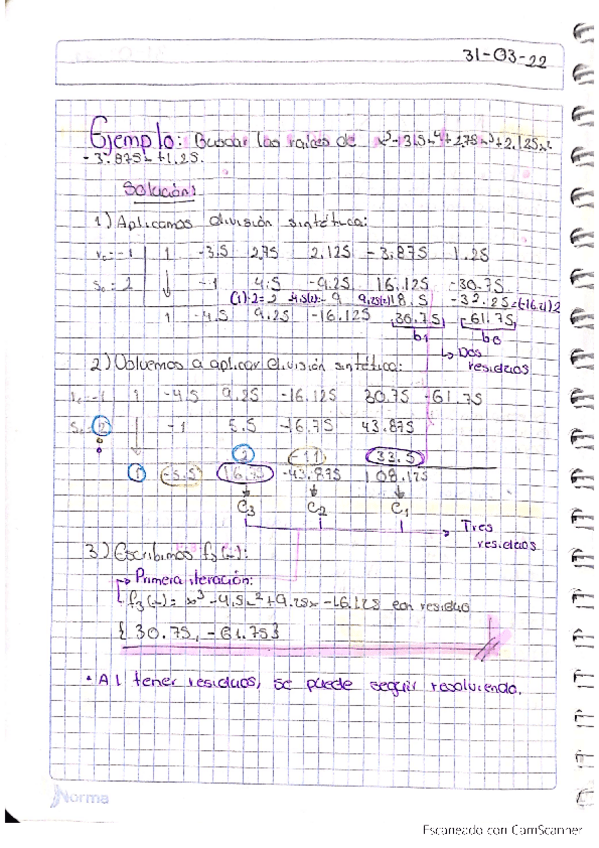 31-03-22
Ejemplo: Buscar las raíces de x⁵-3.5x⁴+2.75x³+2.125x²
-3.875x+1.25.
Solución:
1) Aplicamos división sintética:
r₀=-1 1 -3.5 2.75 2.125 -3.875 1.25
s₀=2 ↓ -1 4.5 -9.25 16.125 -30.75
(1)·2=2 -9 18.5 -32.25=(-16.12)2
1 -4.5 9.25 -16.125 30.75 -61.75
b₁ b₀
↳ Dos
residuos
2) Volvemos a aplicar división sintética:
r₀=-1 1 -4.5 9.25 -16.125 30.75 -61.75
s₀=2 ↓ -1 5.5 -16.75 43.875
2 -11 33.5
1 -5.5 16.75 -43.875 108.125
↓ ↓ ↓
C₃ C₂ C₁
→ Tres
residuos
3) Escribimos f₃(x):
→ Primera iteración:
f₃(x)= x³-4.5x²+9.25x-16.125 con residuo
{30.75, -61.75}
• Al tener residuos, se puede seguir resolviendo.
Norma
Escaneado con CamScanner